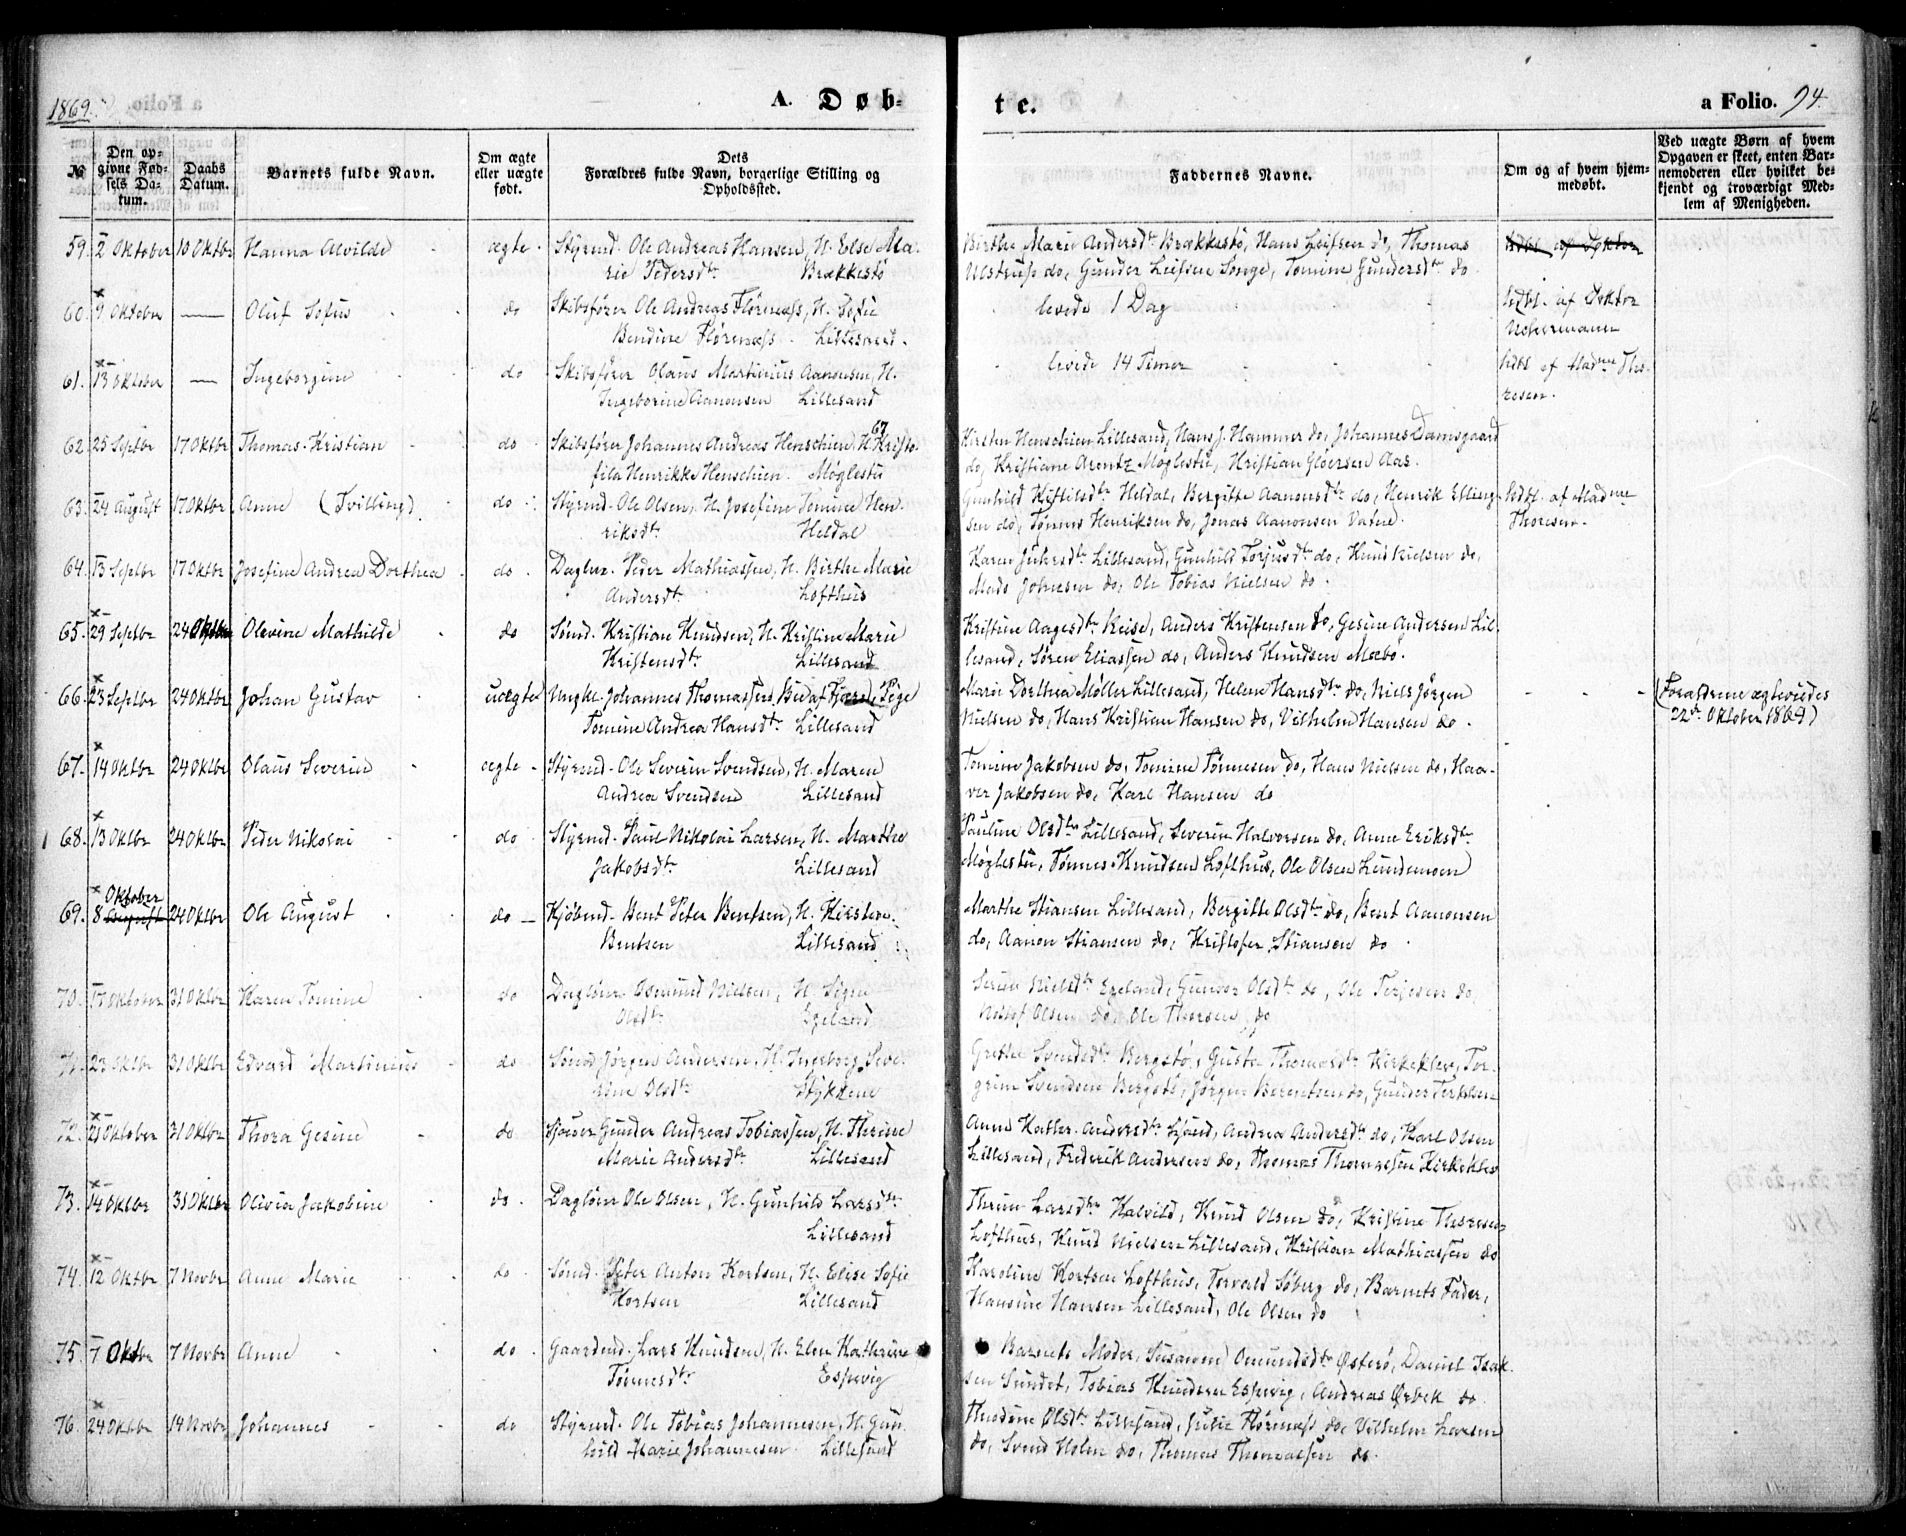 1869.
A. Døb-
te.
a Folio. 94.
№
Den opgivne Fødsels Datum.
Daabs Datum.
Barnets fulde Navn.
Om ægte eller uægte født.
Dets Forældres fulde Navn, borgerlige Stilling og Opholdssted.
Faddernes Navne.
Om og af hvem hjemmedøbt.
Ved uægte Børn af hvem Opgaven er skeet, enten Barnemoderen eller hvilket bekjendt og troværdigt Medlem af Menigheden.
59. 2 Oktober 10 Oktbr Hanna Alvilde ægte Styrmd. Ole Andreas Hansen, H. Else Ma- Birthe Marie Andersdtr Brækkestø, Hans Leifsen do, Thomas
rie Pedersdtr Brækkestø Ulstrup do, Gunder Leifsen Songe, Tomine Gundersdtr do
60. 9 Oktober — Oluf Sofus do Skibsfører Ole Andreas Flørenæss, H. Sofie levede 1 Dag hdbt. af Doktor
Bendine Flørenæss Lillesand.
61. 13 Oktober — Ingeborgine do Skibsfører Olaus Martinius Aanonsen, H. levede 14 Timer hdbt af Madme Tho-
Ingeborine Aanonsen Lillesand resen.
62. 25 Septbr 17 Oktbr Thomas Kristian do Skibsfører Johannes Andreas Henschien, H. Kristo- Kirsten Henschien Lillesand, Hans J. Hammer do, Johannes Damsgaard
fila Henrikke Henschien Møglestu do, Kristiane Arentz Møglestu, Kristian Gløersen Aas.
63. 24 August 17 Oktbr Anne (Tvilling) do Styrmd. Ole Olsen, H. Josefine Tomine Hen- Gunhild Kittilsdtr Heldal, Bergitte Aanonsdtr do, Henrik Elling- hdbt. af Madme
riksdtr Heldal sen do, Tønnes Henriksen do, Jonas Aanonsen Vatne. Thoresen.
64. 13 Septbr 17 Oktbr Josefine Andrea Dorthea do Daglnr. Peder Mathiassen, H. Birthe Marie Lillesand, Gunhild Torjusdtr do, Knud Nielsen do,
Andersdtr Lofthus Mads Johnsen do, Ole Tobias Nielsen do.
65. 29 Septbr 24 Oktbr Olevine Mathilde do Sømd. Kristian Knudsen, H. Kristine Marie Kristine Aagesdtr Reise, Anders Kristensen do, Gesine Andersen Lil-
Kristensdtr Lillesand lesand, Søren Eliassen do, Anders Knudsen Mæbø.
66. 23 Septbr 24 Oktbr Johan Gustav uægte Ungkl. Johannes Thomassen, Pige Marie Dorthea Møller Lillesand, Helene Hansdtr do, Niels Jørgen (Forældrene ægteviedes
Tomine Andrea Hansdtr Lillesand Nielsen do, Hans Kristian Hansen do, Vilhelm Hansen do. 22de Oktober 1869)
67. 14 Oktbr 24 Oktbr Olaus Severin ægte Styrmd. Ole Severin Svendsen, H. Maren Tomine Jakobsen do, Tomine Tønnesen do, Hans Nielsen do, Haa-
Andrea Svendsen Lillesand ver Jakobsen do, Karl Hansen do
68. 13 Oktbr 24 Oktbr Peder Nikolai do Styrmd. Paul Nikolai Larsen, H. Marthe Pauline Olsdtr Lillesand, Severin Halvorsen do, Anne Eriksdtr
Jakobsdtr Lillesand Møglestu, Tønnes Knudsen Lofthus, Ole Olsen Lundemoen
69. 8 August Oktober 24 Oktbr Ole August do Kjøbmd. Bent Peter Bentsen, H. Kirstine Marthe Stiansen Lillesand, Bergitte Olsdtr do, Bent Aanonsen
Bentsen Lillesand do, Aanon Stiansen do, Kristofer Stiansen do
70. 17 Oktober 31 Oktbr Karen Tomine do Dagløner Osmund Nielsen, H. Signe Nielsdtr Egeland, Gunvor Olsdtr do, Ole Terjesen do,
Olsdtr Egeland Olsen do, Ole Thorsen do
71. 23 Oktbr 31 Oktbr Edvard Martinius do Sømd. Jørgen Andersen, H. Ingeborg Seve- Grethe Svendsdtr Bergstø, Gusta Thomasdtr Kirkeklev, Tor-
rine Olsdtr Stykkene grim Svendsen Bergstø, Jørgen Berentsen do, Gunder Terkelsen
72. 21 Oktober 31 Oktbr Thora Gesine do Gunder Andreas Tobiassen, H. Thrine Anne Kathr. Andersdtr Andrea Andersdtr do, Karl Olsen
Marie Andersdtr Lillesand Lillesand, Frederik Andersen do, Thomas Thomassen Kirkeklev
73. 14 Oktbr 31 Oktbr Olivia Jakobine do Dagløner Ole Olsen, H. Gunhild Larsdtr Larsdtr Kalvild, Knud Olsen do, Kristine Theresen
Lillesand Lofthus, Knud Nielsen Lillesand, Kristian Mathiassen do
74. 12 Oktbr 7 Novbr Anne Marie do Sømd. Peter Anton Kortsen, H. Elise Sofie Karoline Kortsen Lofthus, Torvald Søberg do, Barnets Fader,
Kortsen Lillesand Hansine Hansen Lillesand, Ole Olsen do
75. 7 Oktbr 7 Novbr Anne do Gaardmd. Lars Knudsen, H. Elen Kathrine Barnets Moder, Susanne Omundsdtr Østerø, Daniel Isak-
Tønnesdtr Espevig sen Sundet, Tobias Knudsen Espevig, Andreas Ørbek do
76. 24 Oktbr 14 Novbr Johannes do Styrmd. Ole Tobias Johannesen, H. Gun- Theodine Olsdtr Lillesand, Julie Flørenæss do, Vilhelm Larsen
hild Marie Johannesen Lillesand do, Svend Holm do, Thomas Thomassen do.